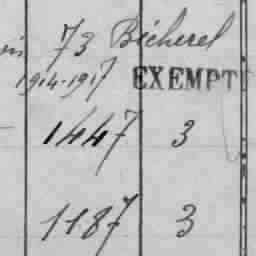 73 Bécherel
1914-1917 EXEMPT
1447 3
1187 3